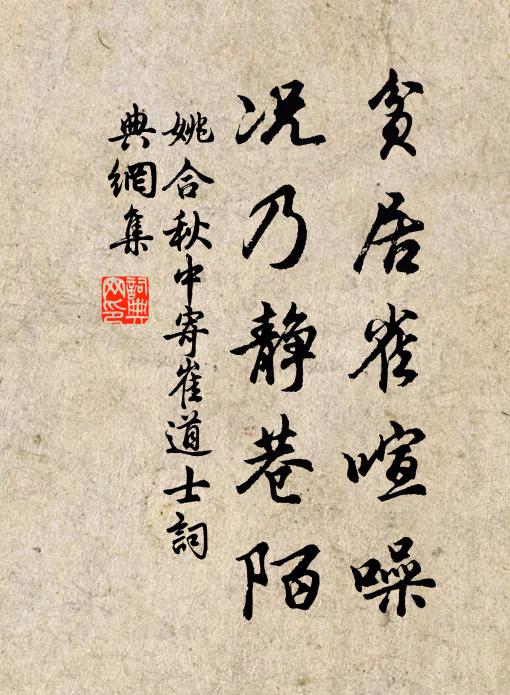 贫居雀喧噪
况乃静巷陌
姚合秋中寄崔道士詞
典網集
詞典
网印